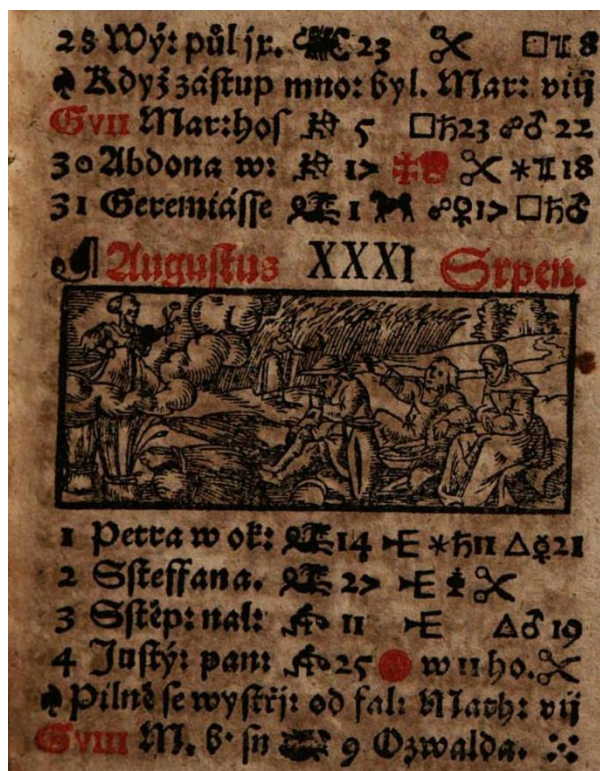 28 Wý: půl jx. 23 □ 8
Když zástup mno: byl. Mar: viij
Gvii Mar:hos 5 □♄23 ☍♂ 22
30 Abdona w: 17 ✶ 18
31 Geremiásse 1 ☍♀17 □♄♂
Augustus XXXI Srpen.
1 Petra w ok: 14 ✶♄11 △☿21
2 Ssteffana. 27
3 Sstěp: nal: 11 △♂ 19
4 Justý: pan: 25 w 11 ho.
Pilně se wystřj: od fal: Math: vij
Gviii M. B. sn 9 Ozwalda.